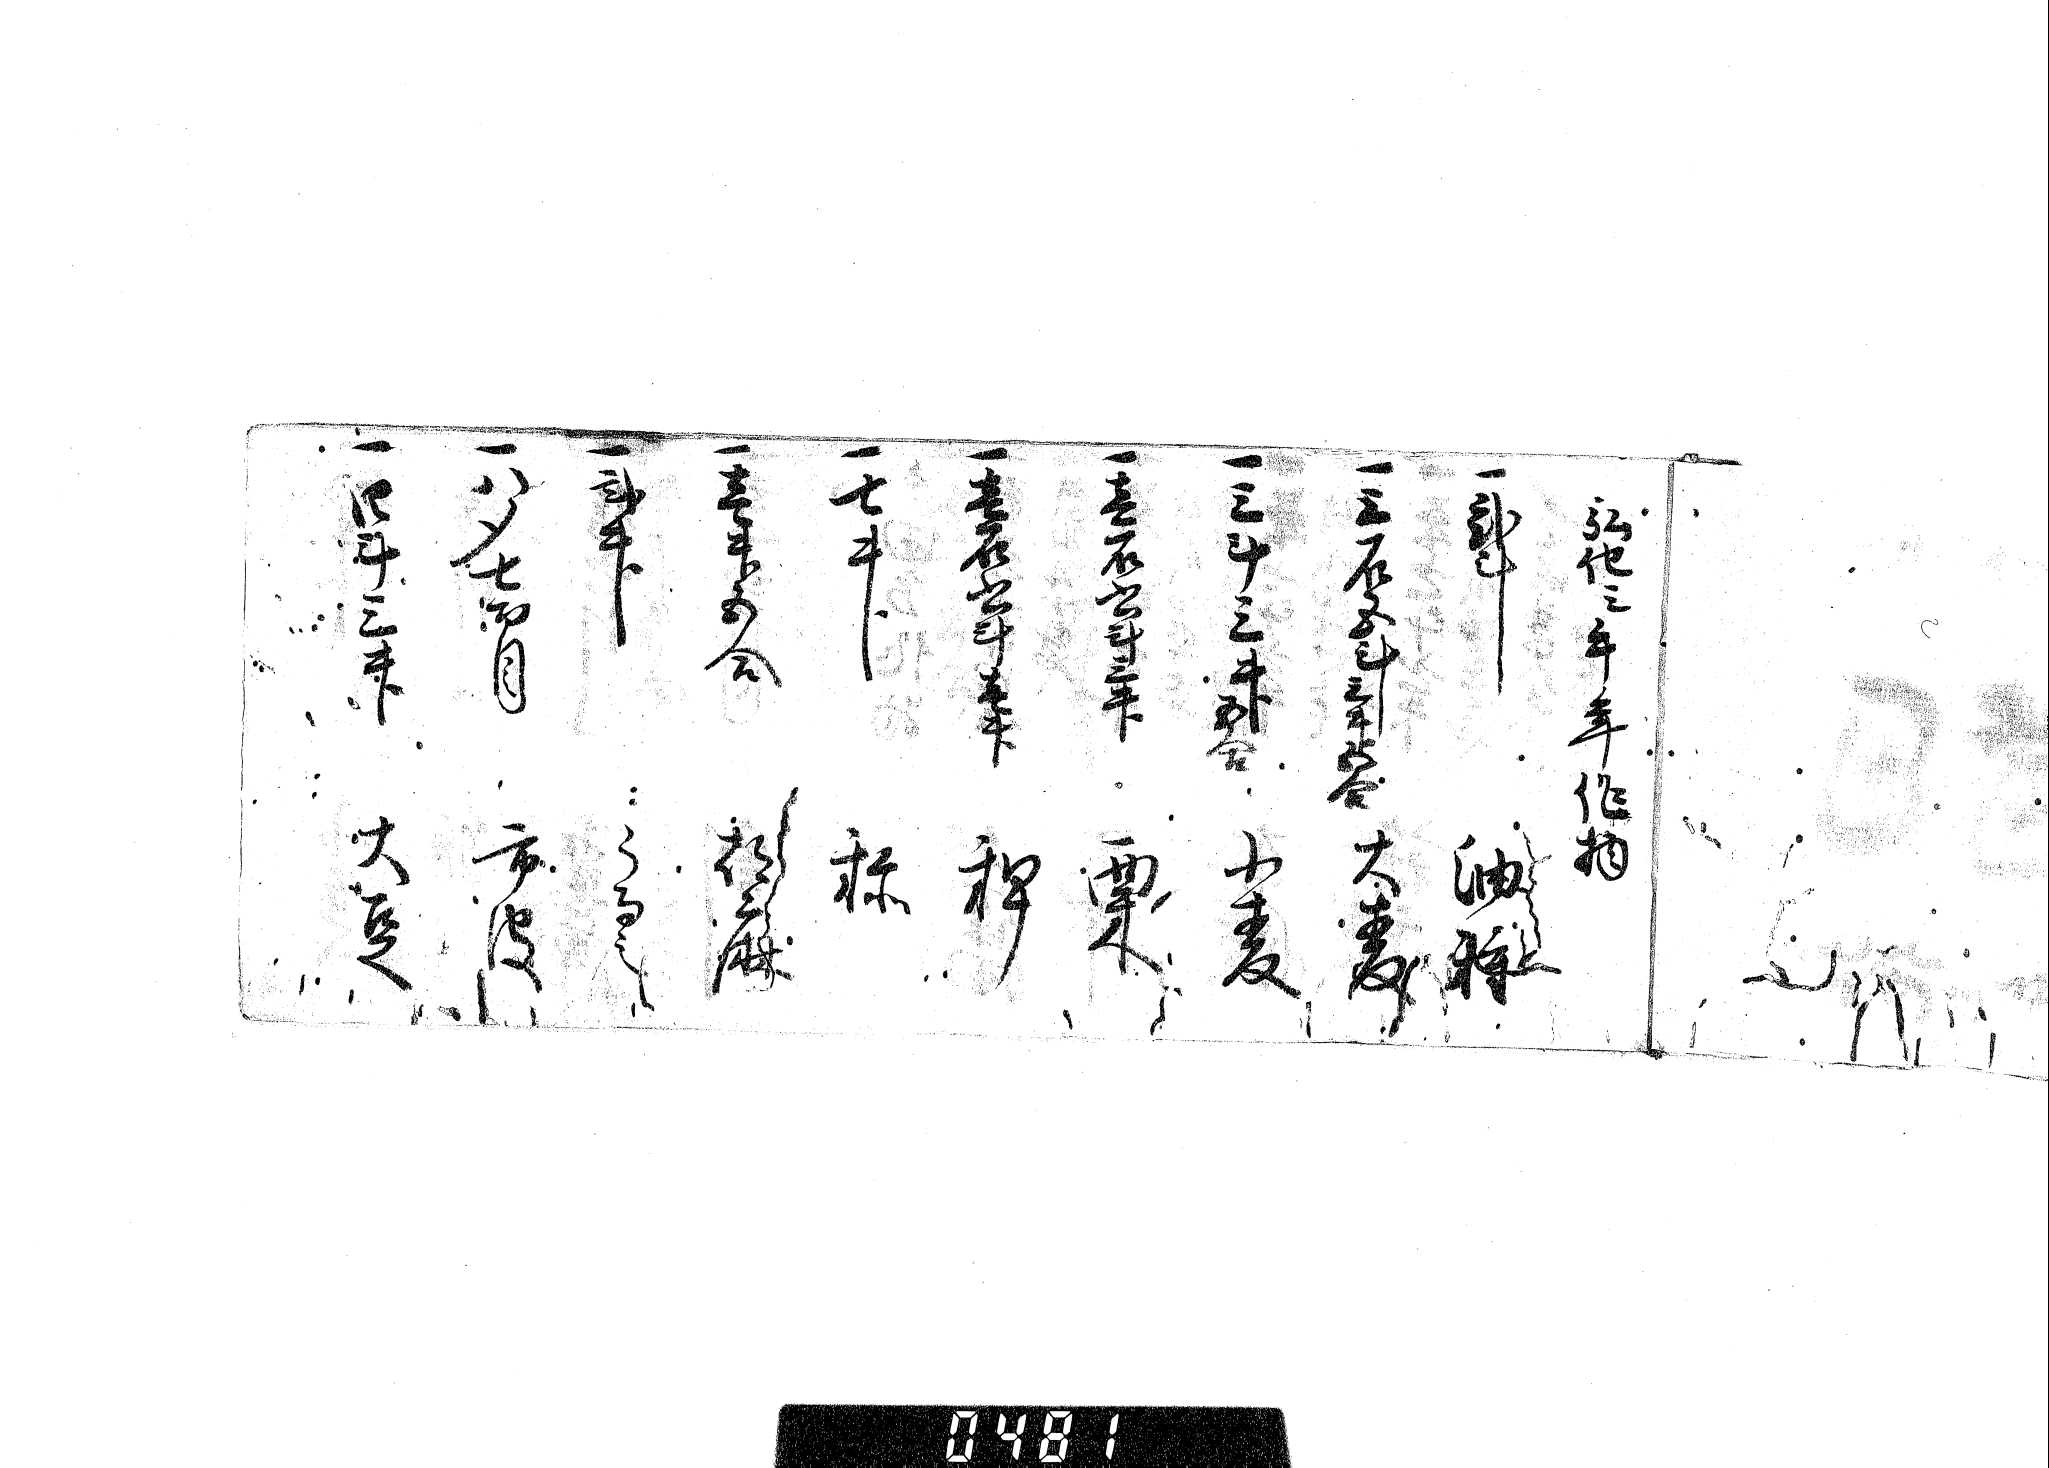 弘化三午年作物
一弐斗 油種
一三石五斗三升六合 大麦
一三斗三升五合 小麦
一壱石六斗三升 粟
一壱石六斗壱升 稗
一七升
一壱升五合 胡麻
一弐升
一八〆七百目
一四斗三升 大豆
0481